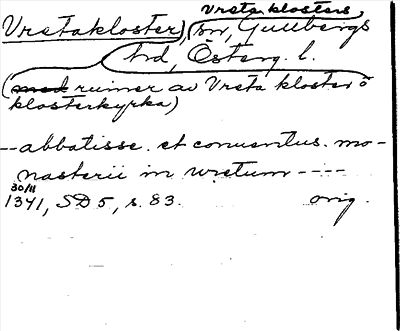 Vreta klosters
Vretakloster, sn, Gullbergs
hrd, Österg. l.
(ruiner av Vreta kloster o
klosterkyrka)
-- abbatisse. et conuentus. mo-
nasterii in wretum ----
30/11
1341, SD 5, s. 83. orig.